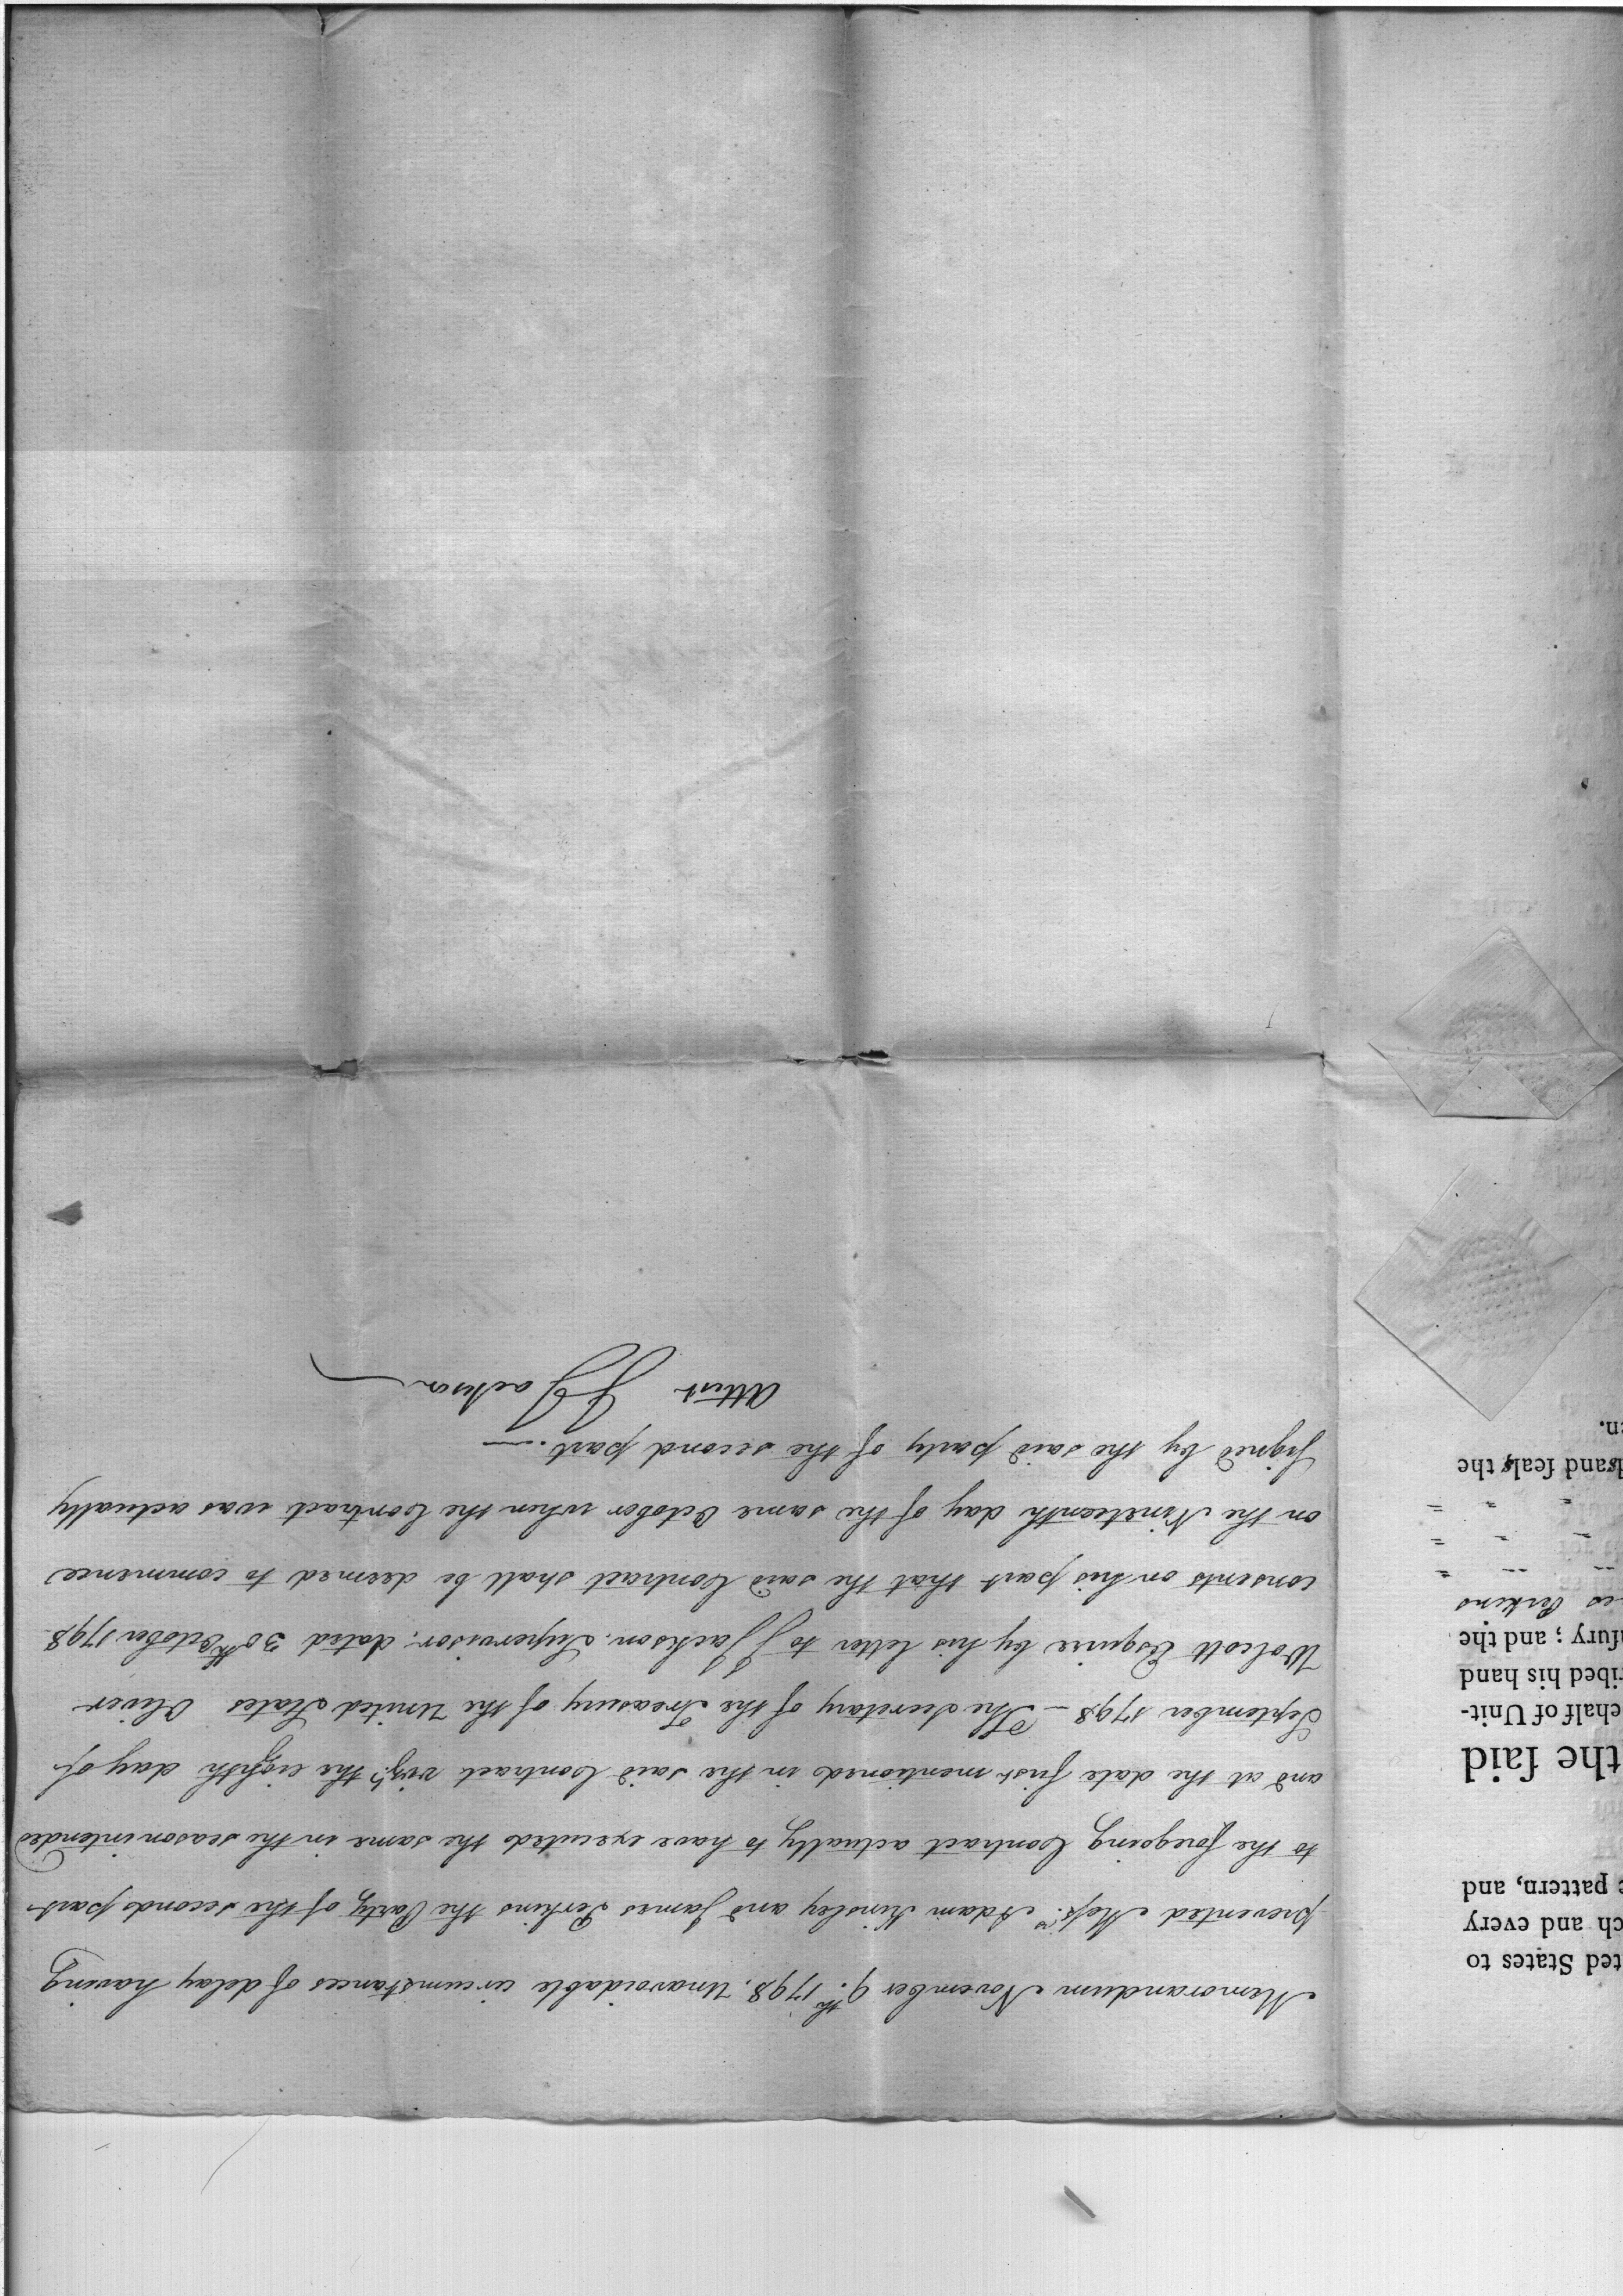 Memorandum November 9th. 1798. Unavoidable circumstances of delay having
prevented Messrs. Adam Kinsley and James Perkins the Party of the second part
to the foregoing Contract actually to have executed the same in the season intended
and at the date first mentioned in the said Contract vizt. the eighth day of
September 1798 – The Secretary of the Treasury of the United States Oliver
Wolcott Esquire by his letter to J Jackson Supervisor, dated 30th October 1798
consents on his part that the said Contract shall be deemed to commence
on the Nineteenth day of the same October when the Contract was actually
signed by the said party of the second part. —
Attest J Jackson
ted States to
ch and every
pattern, and
the ſaid
ehalf of Unit-
ribed his hand
ſury ; and the
es Perkins
and ſeals the
en.